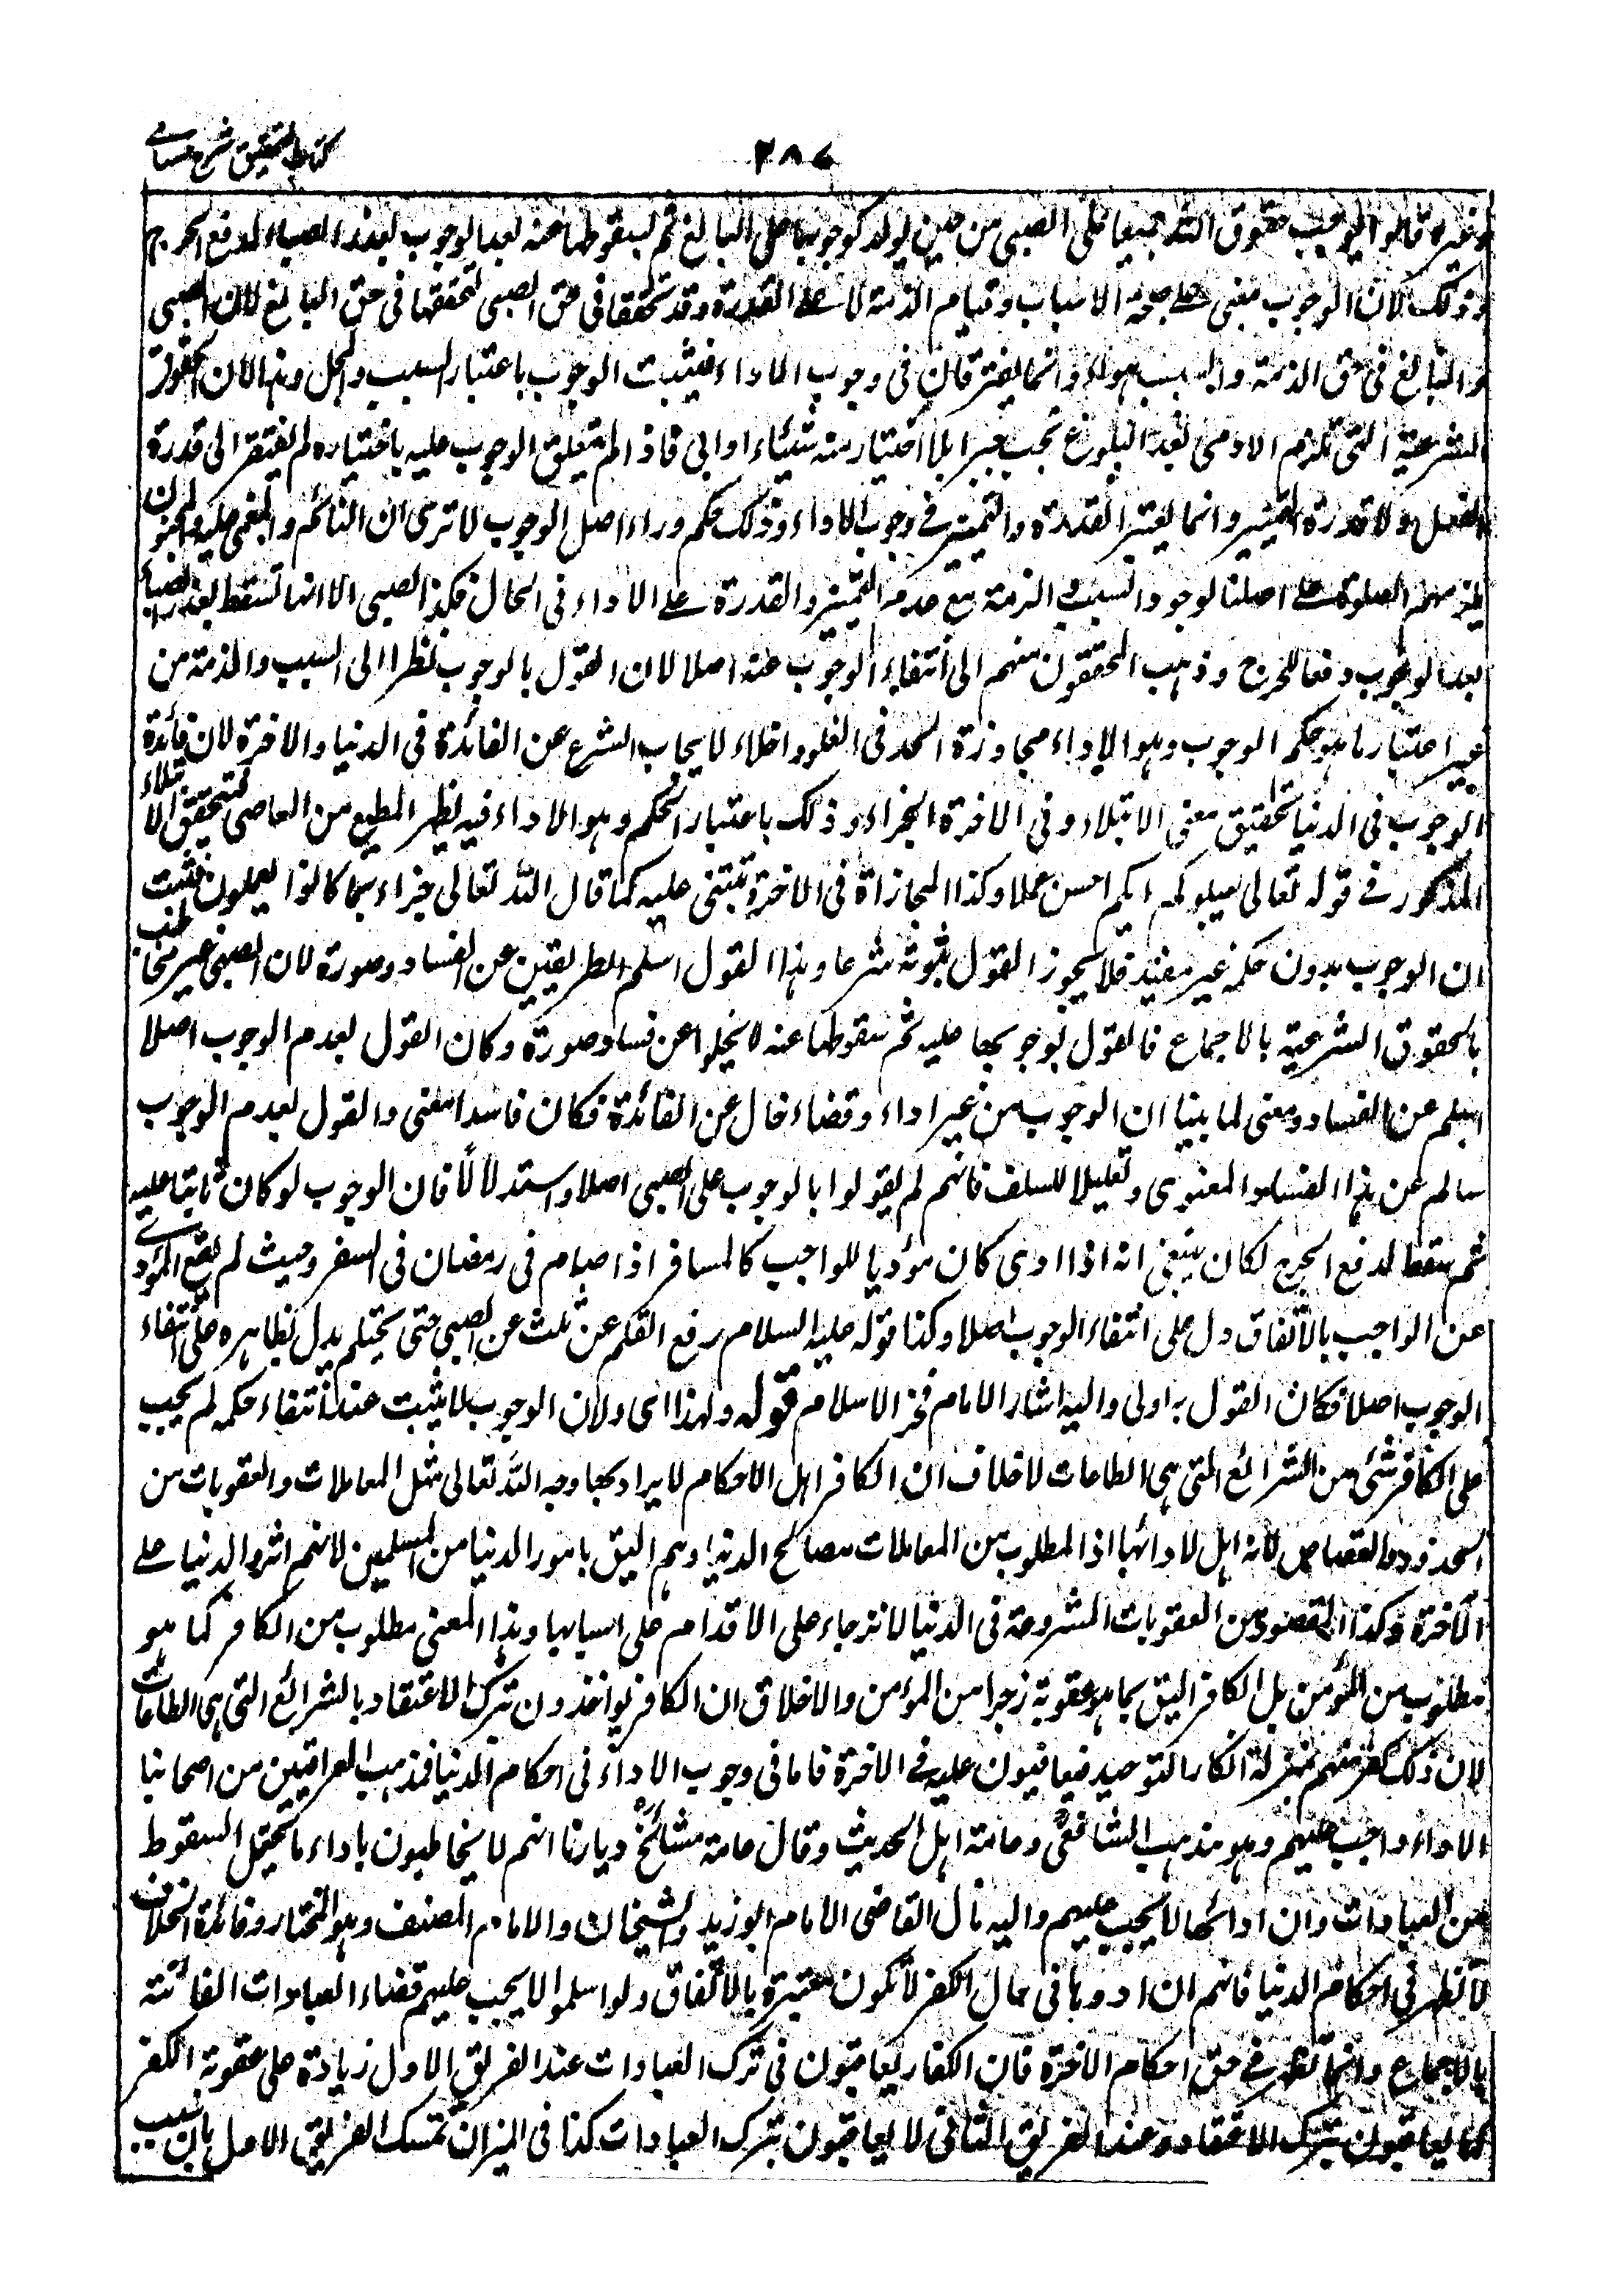 كتاب التحقيق شرح حسامى
٢٨٧
وغيره قالوا بوجوب حقوق الله جميعا على الصبى من حين يولد كوجوبها على البالغ ثم بسقوطها عنه بعد الوجوب بعذر الصباء لدفع الحرج
وذلك لان الوجوب مبنى على صحة الاسباب وقيام الذمة لا على القدرة وقد تحققا فى حق الصبى لتحققهما فى حق البالغ لان الصبى
والبالغ فى حق الذمة والسبب سواء وانما يفترقان فى وجوب الاداء فيثبت الوجوب باعتبار السبب والمحل وهذا لان الحقوق
الشرعية التى تلزم الادمى بعد البلوغ تجب جبرا بلا اختيار منه شاء او ابى فاذا لم يتعلق الوجوب عليه باختياره لم يفتقر الى قدرة
الفعل ولا قدرة التميز وانما يعتبر القدرة والتميز فى وجوب الاداء وذلك حكم وراء اصل الوجوب الا ترى ان النائم والمغمى عليه والمجنون
يلزمهم الصلوة على اصلنا لوجود السبب والذمة مع عدم التميز والقدرة على الاداء فى الحال فكذا الصبى الا انها تسقط بعذر الصبا
بعد الوجوب دفعا للحرج وذهب المحققون منهم الى انتفاء الوجوب عنه اصلا لان القول بالوجوب نظرا الى السبب والذمة من
غير اعتبار ما هو حكم الوجوب وهو الاداء مجاوزة الحد فى الغلو واخلاء لايجاب الشرع عن الفائدة فى الدنيا والاخرة لان فائدة
الوجوب فى الدنيا تحقيق معنى الابتلاء وفى الاخرة الجزاء وذلك باعتبار الحكم وهو الاداء فبه يظهر المطيع من العاصى فيتحقق الابتلاء
المذكور فى قوله تعالى ليبلوكم ايكم احسن عملا وكذا المجازاة فى الاخرة تبتنى عليه كما قال الله تعالى جزاء بما كانوا يعملون فثبت
ان الوجوب بدون حكمه غير مفيد فلا يجوز القول بثبوته شرعا وهذا القول اسلم الطريقين عن الفساد صورة لان الصبى غير مخاطب
بالحقوق الشرعية بالاجماع فالقول بوجوبها عليه ثم سقوطها عنه لا يخلوا عن فساد صورة وكان القول بعدم الوجوب اصلا
اسلم عن الفساد ومعنى لما بينا ان الوجوب من غير اداء وقضاء خال عن الفائدة فكان فاسدا معنى والقول بعدم الوجوب
سالم عن هذا الفساد المعنوى وتعليلا للسلف فانهم لم يقولوا بالوجوب على الصبى اصلا واستدلالا فان الوجوب لو كان ثابتا عليه
ثم سقط لدفع الحرج لكان ينبغى انه اذا ادى كان مؤديا للواجب كالمسافر اذا صام فى رمضان فى السفر وحيث لم يقع المؤدى
عن الواجب بالاتفاق دل على انتفاء الوجوب اصلا وكذا قوله عليه السلام رفع القلم عن ثلث عن الصبى حتى يحتلم يدل بظاهره على انتفاء
الوجوب اصلا فكان القول به اولى واليه اشار الامام فخر الاسلام قوله ولهذا اى ولان الوجوب لا يثبت عند انتفاء حكمه لم يجب
على الكافر شئ من الشرائع التى هى الطاعات لا خلاف ان الكافر اهل لاحكام لا يراد بها وجه الله تعالى مثل المعاملات والعقوبات من
الحدود والقصاص لانه اهل لادائها اذ المطلوب من المعاملات مصالح الدنيا وهم اليق بامور الدنيا من المسلمين لانهم اثروا الدنيا على
الآخرة وكذا المقصود من العقوبات المشروعة فى الدنيا الانزجار على الاقدام على اسبابها وهذا المعنى مطلوب من الكافر كما هو
مطلوب من المؤمن بل الكافر اليق بما هو عقوبة زجرا من المؤمن والاخلاق ان الكافر يواخذون بترك الاعتقاد بالشرائع التى هى الطاعات
لان ذلك كفر منهم بمنزلة انكار التوحيد فيعاقبون عليه فى الاخرة فاما فى وجوب الاداء فى احكام الدنيا فمذهب العراقيين من اصحابنا
الاداء واجب عليهم وهو مذهب الشافعى وعامة اهل الحديث وقال عامة مشائخ ديارنا انهم لا يخاطبون باداء ما يحتمل السقوط
من العبادات وان ادائها لا يجب عليهم واليه مال القاضى الامام ابو زيد والشيخان والامام المصنف وهو المختار وفائدة الخلاف
لا تظهر فى احكام الدنيا فانهم ان ادوها فى حال الكفر لا تكون معتبرة بالاتفاق ولو اسلموا لا يجب عليهم قضاء العبادات الفائتة
بالاجماع وانما تظهر فى حق احكام الاخرة فان الكفار يعاقبون فى ترك العبادات عند الفريق الاول زيادة على عقوبة الكفر
كما يعاقبون بترك الاعتقاد وعند الفريق الثانى لا يعاقبون بترك العبادات كذا فى الميزان تمسك الفريق الاول بان سبب